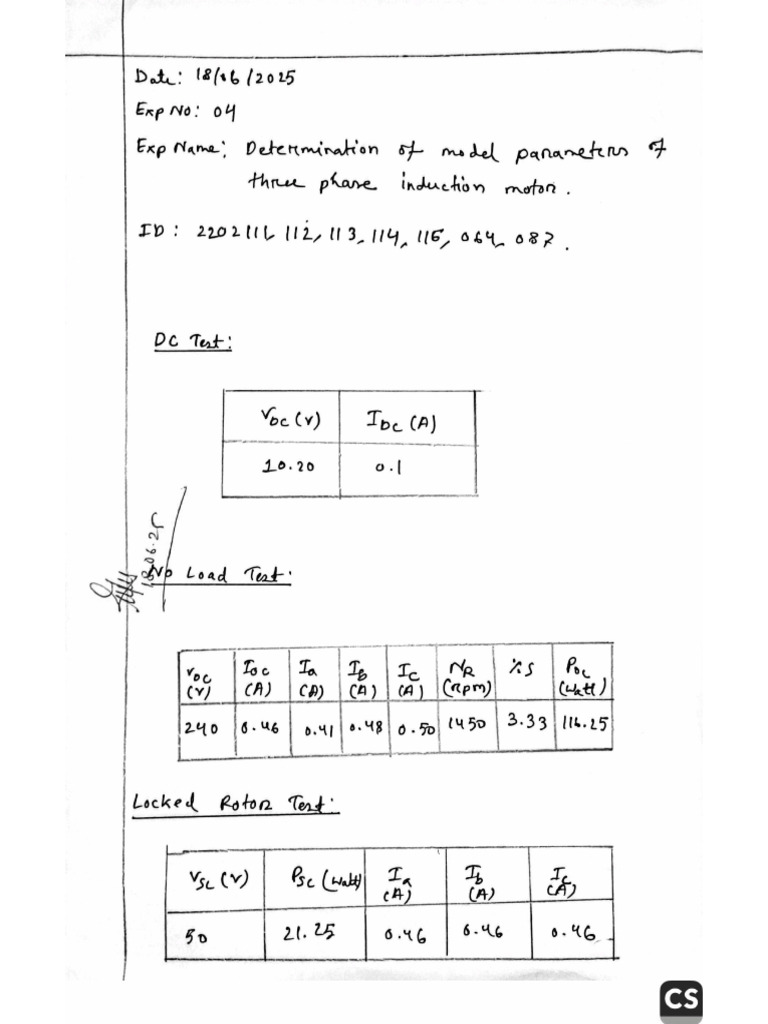 Date: 18/06/2025
Exp No: 04
Exp Name: Determination of model parameters of
three phase induction motor.
ID: 2202111, 112, 113, 114, 115, 064, 087.
DC Test:
VDC (V) IDC (A)
10.20 0.1
18.06.25
No Load Test:
VOC (V) IOC (A) Ia (A) Ib (A) IC (A) NR (rpm) %S POC (Watt)
240 0.46 0.41 0.48 0.50 1450 3.33 116.25
Locked Rotor Test:
VSC (V) PSC (Watt) Ia (A) Ib (A) IC (A)
50 21.25 0.46 0.46 0.46
CS